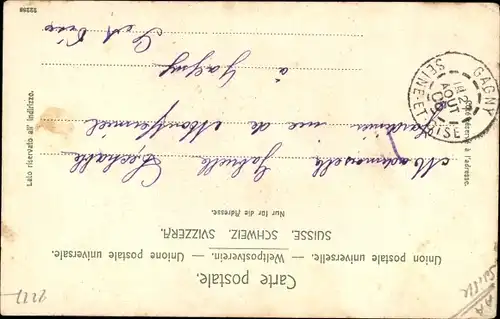 Carte postale.
Union postale universelle. — Weltpostverein. — Unione postale universale.
SUISSE. SCHWEIZ. SVIZZERA.
Nur für die Adresse.
Mademoiselle Gabrielle
rue de Montfermeil
à Gagny
S et Oise
Lato riservato all' indirizzo.
Côté réservé à l'adresse.
GAGNY
AOUT
SEINE-ET-OISE
22258